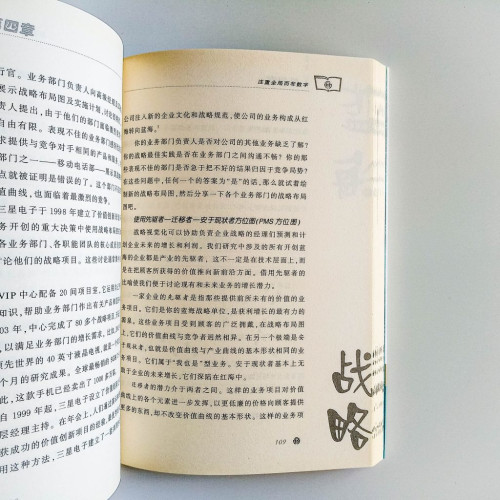 第四章
行官。业务部门负责人向高级
展示战略布局图及实施计划，
责人提出，由于他们的部门
自由有限。表现不佳的业务部
求提供与竞争对手相同的产品和
部门之一——移动电话部——
点就被证明是错误的了。这个部门
值曲线，也面临着最激烈的竞争。
三星电子于 1998 年建立了价值创
务开创的重大决策中使用战略布局
各业务部门、各职能团队的核心成
讨论他们的战略项目。
VIP 中心配备 20 间项目室，它
知识，帮助业务部门作出有关产品
03 年，中心完成了 80 多个战略项
以满足业务部门的增长需求。
原先世界的 40 英寸液晶电视，就是
个月的研究成果。全球最畅
此，这款手机已经卖出了 1000 多万
自 1999 年起，三星电子设立了
层经理主持。在年会上，人们通过
获成功的价值创新项目的经验，
用这种方法，三星电子建立了一
注重全局而非数字
公司注入新的企业文化和战略规范，使公司的业务构成从红
海转向蓝海。
你的业务部门负责人是否对公司的其他业务缺乏了解？
你的战略最佳实践是否在业务部门之间沟通不畅？你的那
些表现不佳的部门是否急于把不好的结果归因于竞争局势？
在这些问题中，任何一个的答案为“是”的话，那么就试着给
制新的战略布局图，然后分享一下各个业务部门的战略布局
图吧。
使用先驱者—迁移者—安于现状者方位图(PMS 方位图)
战略视觉化可以协助负责企业战略的经理们预测和计
划企业未来的增长和利润。我们研究中涉及的所有开创蓝
海的企业都是产业的先驱者，这不一定是在技术层面上，而
是在把顾客所获每的价值推向新前沿方面。借用先驱者的
比喻使我们便于讨论现有和未来业务的增长潜力。
一家企业的先驱者是指那些提供前所未有的价值的业
务项目。它们是你的蓝海战略单位，是获利增长的最有力的
源泉。这些业务项目受到顾客的广泛拥戴，在战略布局图
上，它们的价值曲线与竞争者迥然相异。在另一个极端是安
于现状者，也就是价值曲线与产业曲线的基本形状相同的业
务项目。它们属于“我也是”型业务。安于现状者基本上无
助于企业的未来增长，它们深陷在红海中。
迁移者的潜力介于两者之间。这样的业务项目对价值
曲线上的各个元素进一步发挥，以更低廉的价格向顾客提供
更多的东西，却不改变价值曲线的基本形状。这样的业务项
109
战略